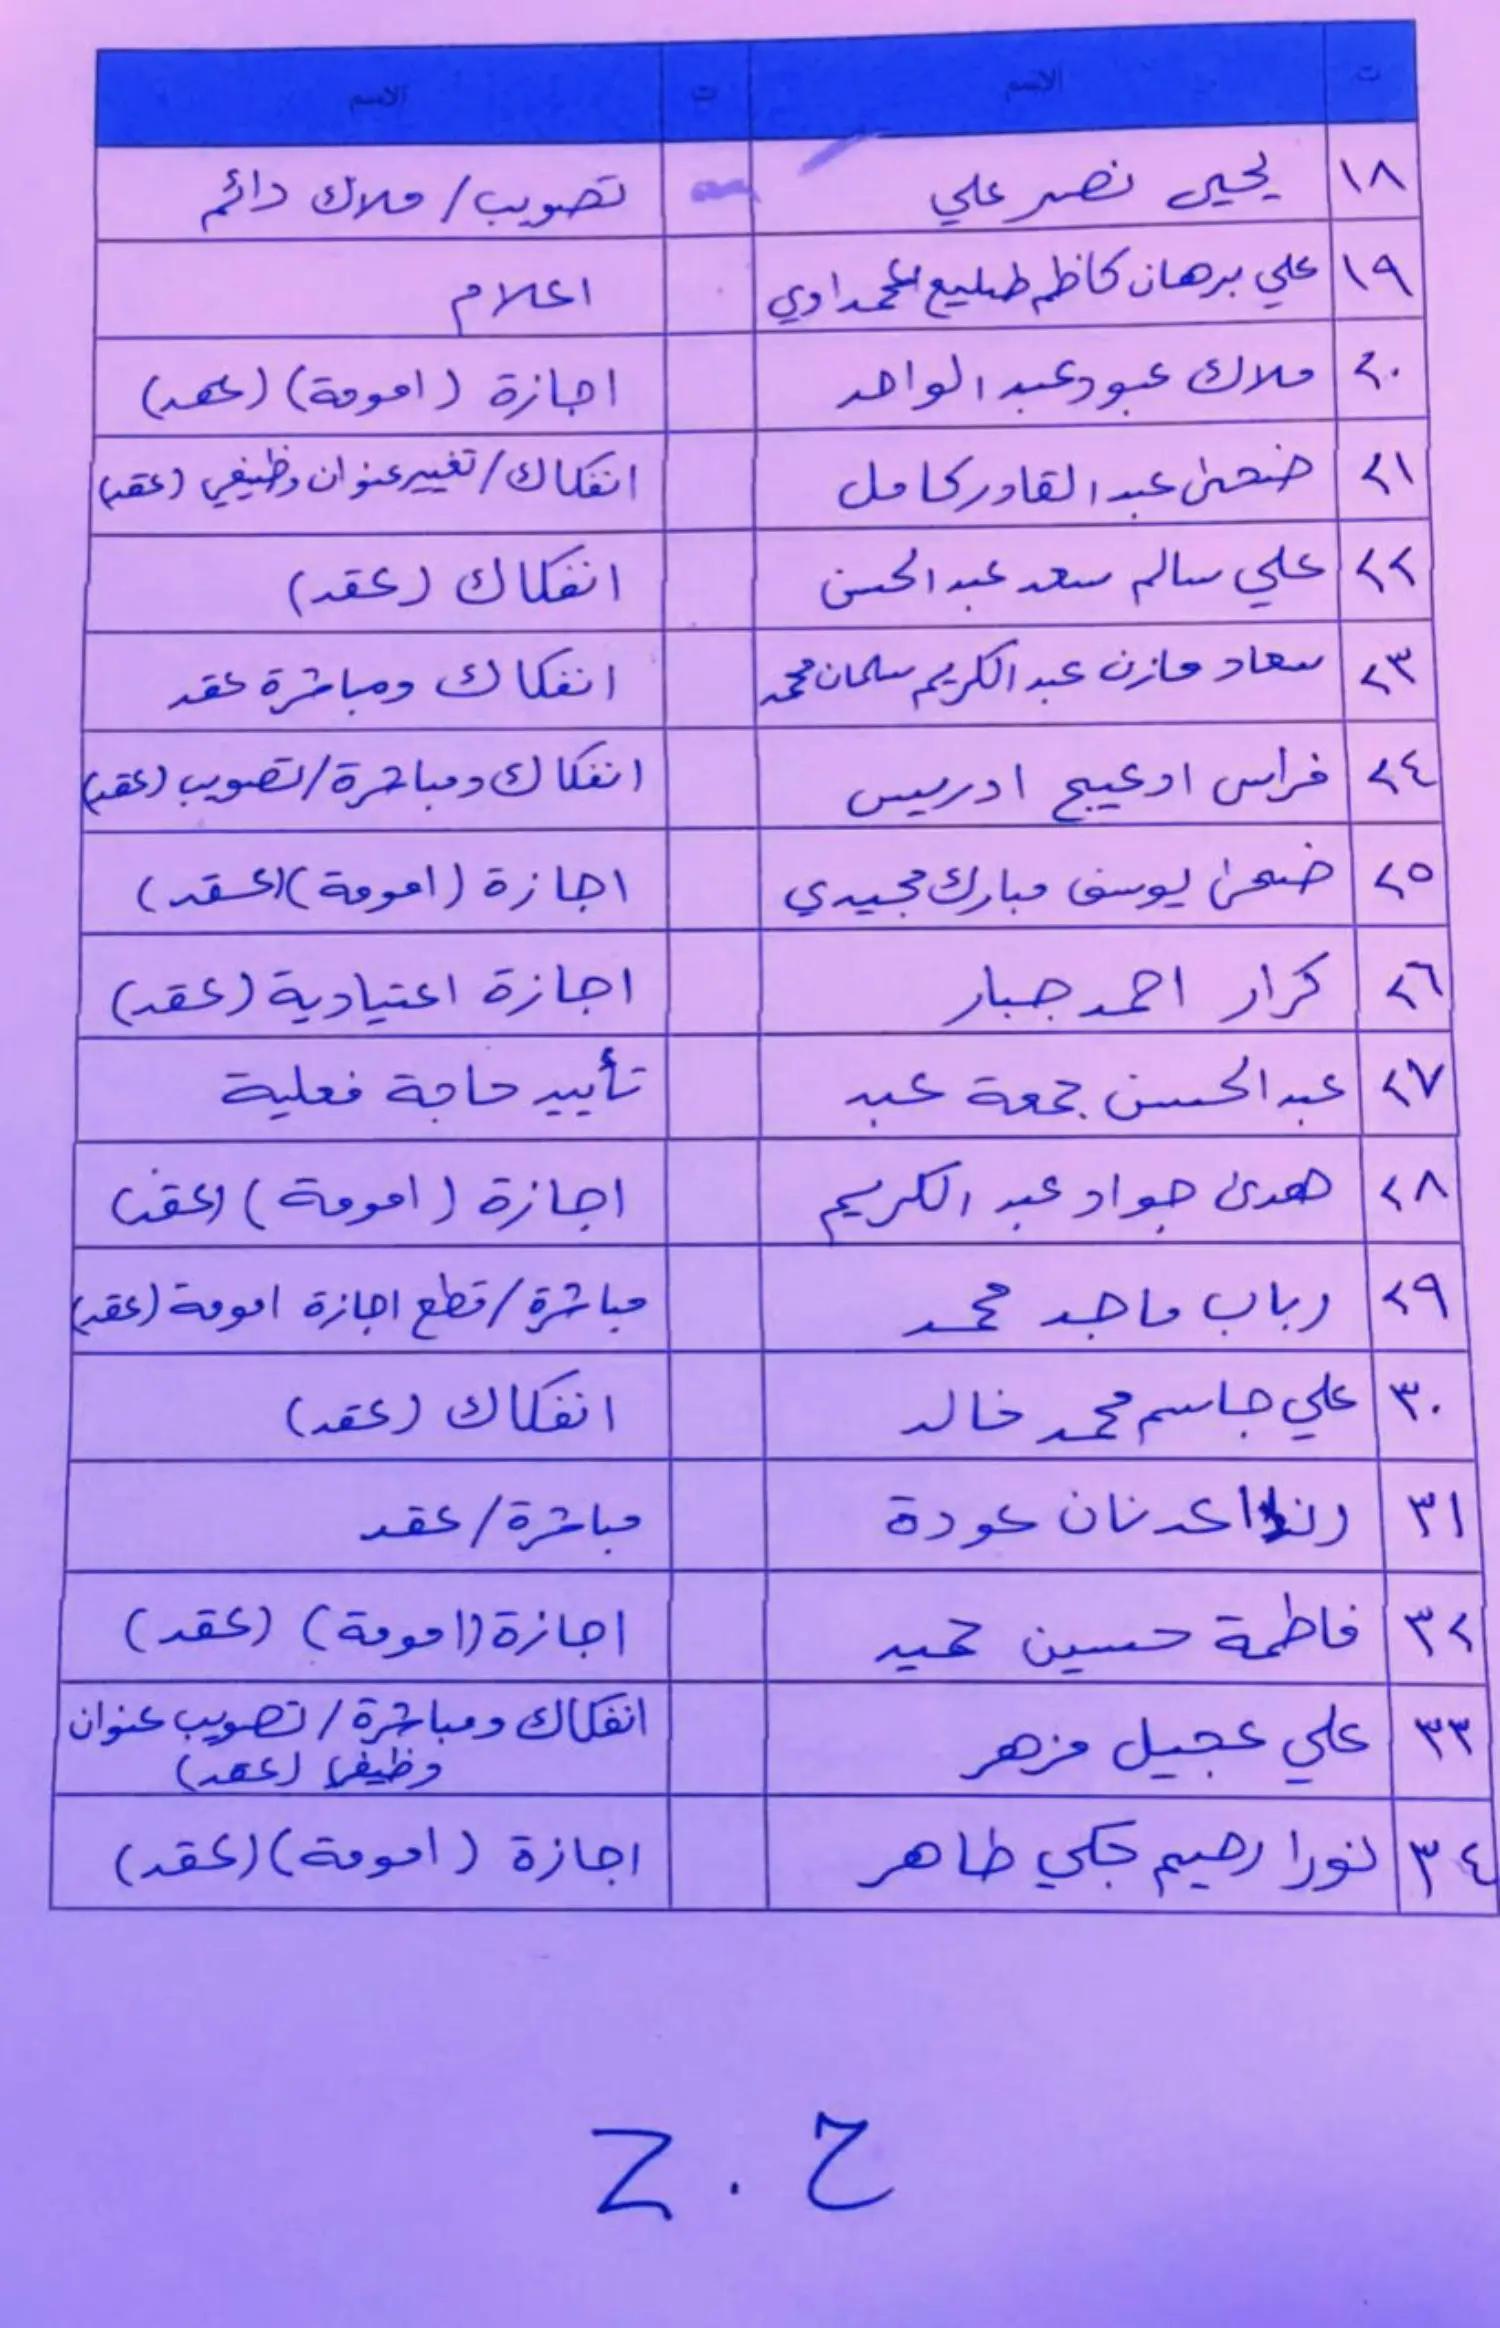 ت الاسم ت الاسم
١٨ يحيى نصر علي تصويب/ ملاك دائم
١٩ علي برهان كاظم طليع المحمداوي اعلام
٢٠ ملاك عبود عبد الواحد اجازة (امومة) (عقد)
٢١ ضحى عبد القادر كامل انفكاك/ تغيير عنوان وظيفي (عقد)
٢٢ علي سالم سعد عبد الحسن انفكاك (عقد)
٢٣ سعاد مازن عبد الكريم سلمان محمد انفكاك ومباشرة عقد
٢٤ فراس ادعيج ادريس انفكاك ومباشرة/ تصويب (عقد)
٢٥ ضحى يوسف مبارك مجيدي اجازة (امومة) (عقد)
٢٦ كرار احمد جبار اجازة اعتيادية (عقد)
٢٧ عبد الحسن جمعة عبد تأييد حاجة فعلية
٢٨ هدى جواد عبد الكريم اجازة (امومة) (عقد)
٢٩ رباب ماجد محمد مباشرة/ قطع اجازة امومة (عقد)
٣٠ علي جاسم محمد خالد انفكاك (عقد)
٣١ عدنان عودة مباشرة/ عقد
٣٢ فاطمة حسين حميد اجازة (امومة) (عقد)
٣٣ علي عجيل مزهر انفكاك ومباشرة/ تصويب عنوان
وظيفي (عقد)
٣٤ نورا رحيم چكي طاهر اجازة (امومة) (عقد)
ح . ح